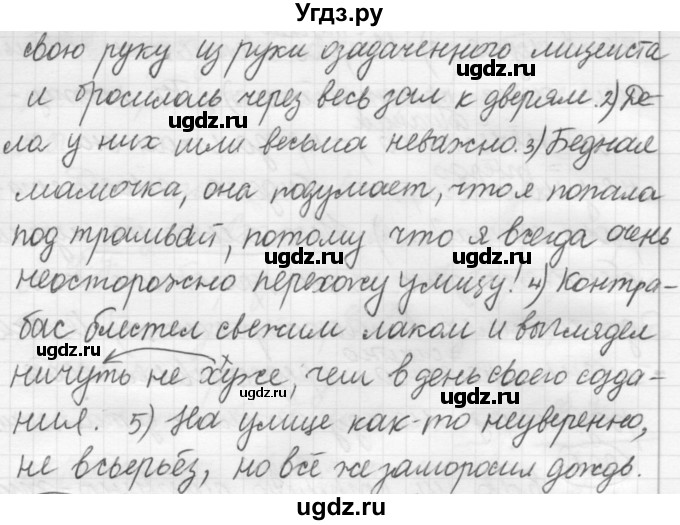 Угдз.ру
свою руку из руки озадаченного лицеиста
и бросилась через весь зал к дверям. 2) Де-
ла у них шли весьма неважно. 3) Бедная
мамочка, она подумает, что я попала
под трамвай, потому что я всегда очень
неосторожно перехожу улицу! 4) Контра-
бас блестел свежим лаком и выглядел
ничуть не хуже, чем в день своего созда-
ния. 5) На улице как-то неуверенно,
не всерьёз, но всё же заморосил дождь.
ugdz.ru
ugdz.ru
ugdz.ru
ugdz.ru
ugdz.ru
ugdz.ru
ugdz.ru
ugdz.ru
ugdz.ru
ugdz.ru